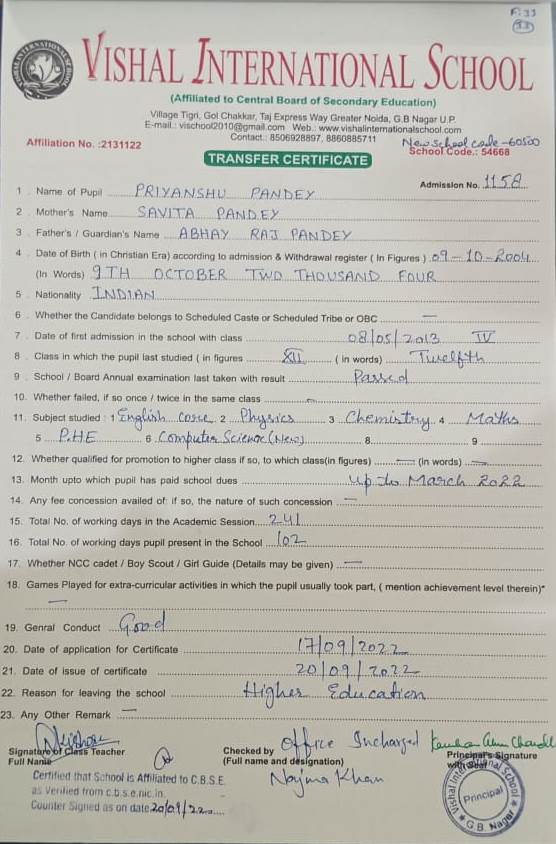 F.33
33
VISHAL INTERNATIONAL SCHOOL
(Affiliated to Central Board of Secondary Education)
Village Tigri, Gol Chakkar, Taj Express Way Greater Noida, G.B Nagar U.P.
E-mail.: vischool2010@gmail.com Web.: www.vishalinternationalschool.com
Contact.: 8506928897, 8860885711
New school code - 60500
Affiliation No. :2131122
School Code.: 54668
TRANSFER CERTIFICATE
Admission No. 1158
1 . Name of Pupil PRIYANSHU PANDEY
2 . Mother's Name SAVITA PANDEY
3 . Father's / Guardian's Name ABHAY RAJ PANDEY
4 . Date of Birth ( in Christian Era) according to admission & Withdrawal register ( In Figures ) 09-10-2004
(In Words) 9TH OCTOBER TWO THOUSAND FOUR
5 . Nationality INDIAN
6 . Whether the Candidate belongs to Scheduled Caste or Scheduled Tribe or OBC —
7 . Date of first admission in the school with class 08/05/2013 IV
8 . Class in which the pupil last studied ( in figures XII ( in words) Twelfth
9 . School / Board Annual examination last taken with result Passed
10. Whether failed, if so once / twice in the same class —
11. Subject studied : 1 English core 2 Physics 3 Chemistry 4 Maths
5 P.HE 6 Computer Science (New) 8 9
12. Whether qualified for promotion to higher class if so, to which class(in figures) — (in words) —
13. Month upto which pupil has paid school dues up to March 2022
14. Any fee concession availed of: if so, the nature of such concession —
15. Total No. of working days in the Academic Session 241
16. Total No. of working days pupil present in the School 102
17. Whether NCC cadet / Boy Scout / Girl Guide (Details may be given) —
18. Games Played for extra-curricular activities in which the pupil usually took part, ( mention achievement level therein)*
—
19. Genral Conduct Good
20. Date of application for Certificate 17/09/2022
21. Date of issue of certificate 20/09/2022
22. Reason for leaving the school Higher Education
23. Any Other Remark —
Office Incharged
Signature of Class Teacher
Full Name
Checked by
(Full name and designation)
Najma Khan
Principal's Signature
with Seal
Certified that School is Affiliated to C.B.S.E.
as Verified from c.b.s.e.nic.in.
Counter Signed as on date 20/09/22
Vishal International School
Principal
G.B. Nagar